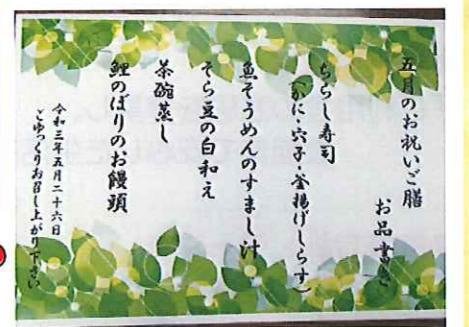 五月のお祝いご膳
お品書き
ちらし寿司
(かに・穴子・釜揚げしらす)
魚そうめんのすまし汁
そら豆の白和え
茶碗蒸し
鯉のぼりのお饅頭
令和三年五月二十六日
ごゆっくりお召し上がり下さい